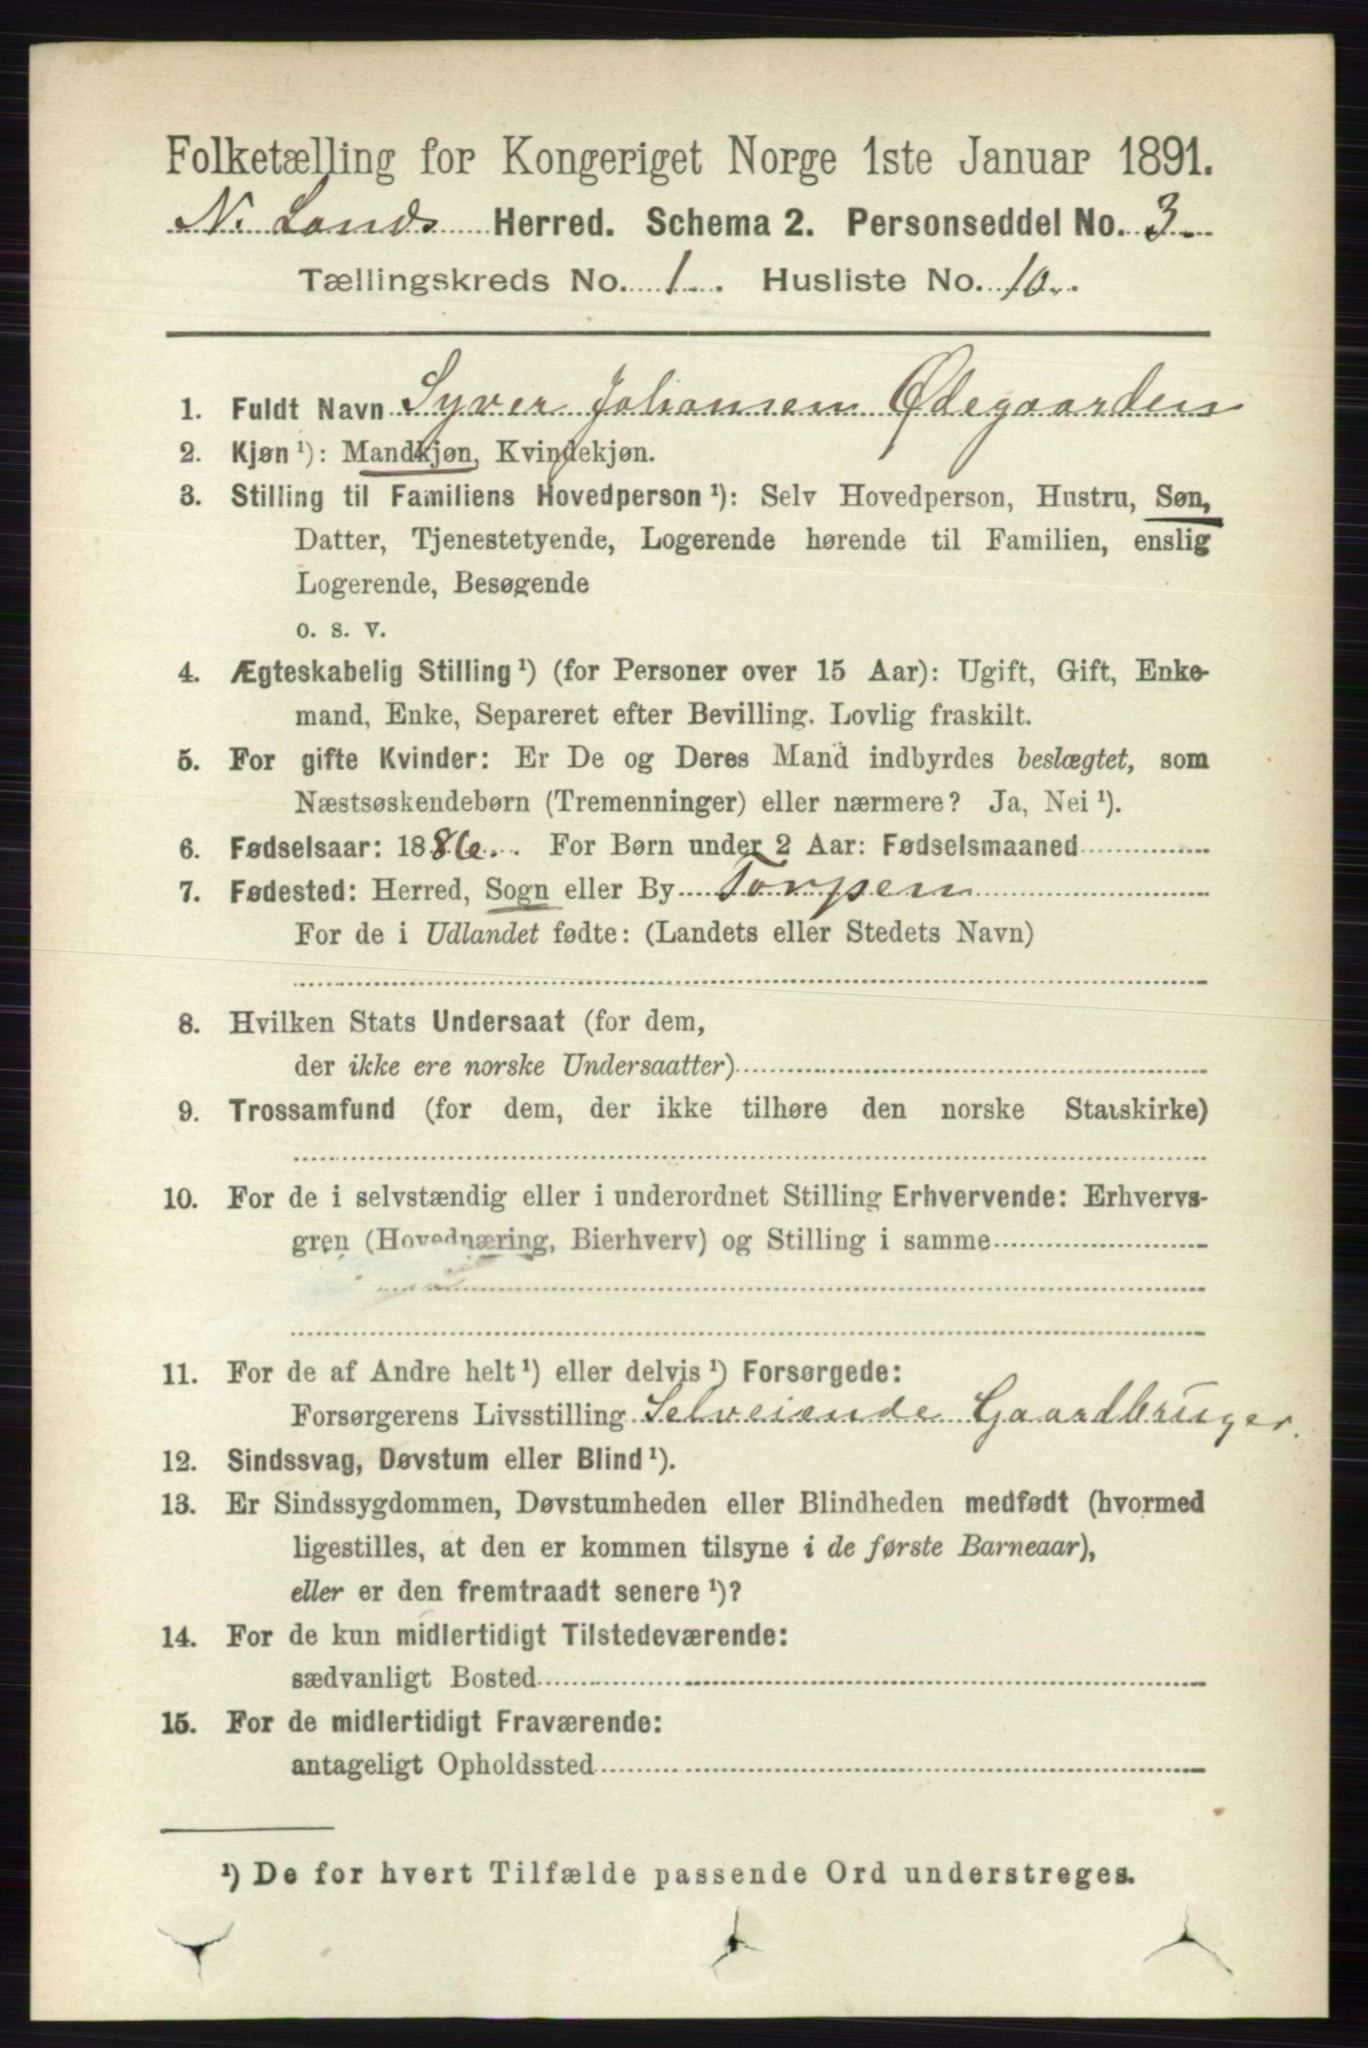 Folketælling for Kongeriget Norge 1ste Januar 1891.
N. Lands Herred. Schema 2. Personseddel No. 3
Tællingskreds No. 1. Husliste No. 10.
1. Fuldt Navn Syver Johansen Ødegaarden
2. Kjøn¹): Mandkjøn, Kvindekjøn.
3. Stilling til Familiens Hovedperson¹): Selv Hovedperson, Hustru, Søn,
Datter, Tjenestetyende, Logerende hørende til Familien, enslig
Logerende, Besøgende
o. s. v.
4. Ægteskabelig Stilling¹) (for Personer over 15 Aar): Ugift, Gift, Enke-
mand, Enke, Separeret efter Bevilling. Lovlig fraskilt.
5. For gifte Kvinder: Er De og Deres Mand indbyrdes beslægtet, som
Næstsøskendebørn (Tremenninger) eller nærmere? Ja, Nei¹).
6. Fødselsaar: 1886. For Børn under 2 Aar: Fødselsmaaned
7. Fødested: Herred, Sogn eller By Torpen
For de i Udlandet fødte: (Landets eller Stedets Navn)
8. Hvilken Stats Undersaat (for dem,
der ikke ere norske Undersaatter)
9. Trossamfund (for dem, der ikke tilhøre den norske Statskirke)
10. For de i selvstændig eller i underordnet Stilling Erhvervende: Erhvervs-
gren (Hovednæring, Bierhverv) og Stilling i samme
11. For de af Andre helt¹) eller delvis¹) Forsørgede:
Forsørgerens Livsstilling Selveiende Gaardbruger.
12. Sindssvag, Døvstum eller Blind¹).
13. Er Sindssygdommen, Døvstumheden eller Blindheden medfødt (hvormed
ligestilles, at den er kommen tilsyne i de første Barneaar),
eller er den fremtraadt senere¹)?
14. For de kun midlertidigt Tilstedeværende:
sædvanligt Bosted
15. For de midlertidigt Fraværende:
antageligt Opholdssted
¹) De for hvert Tilfælde passende Ord understreges.